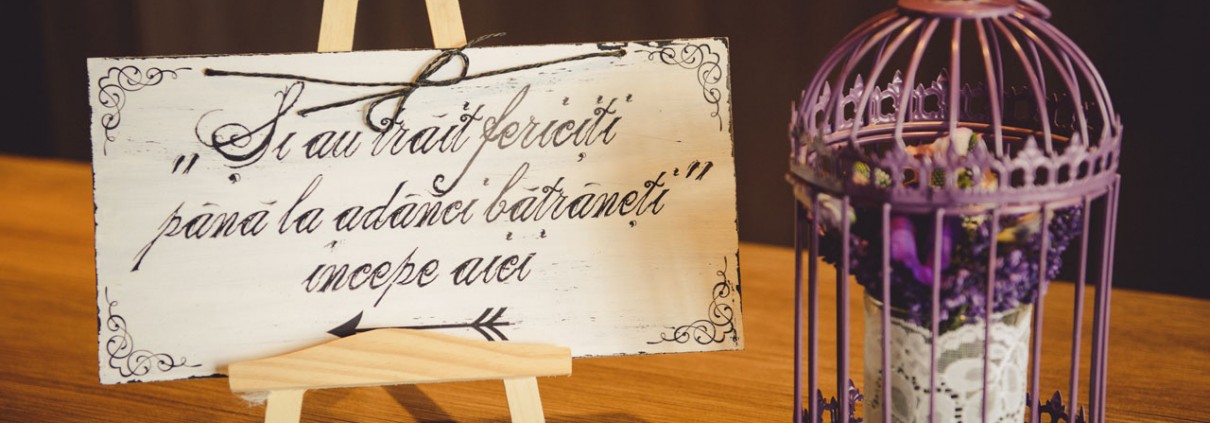 „Și au trăit fericiți
până la adânci bătrâneți”
începe aici